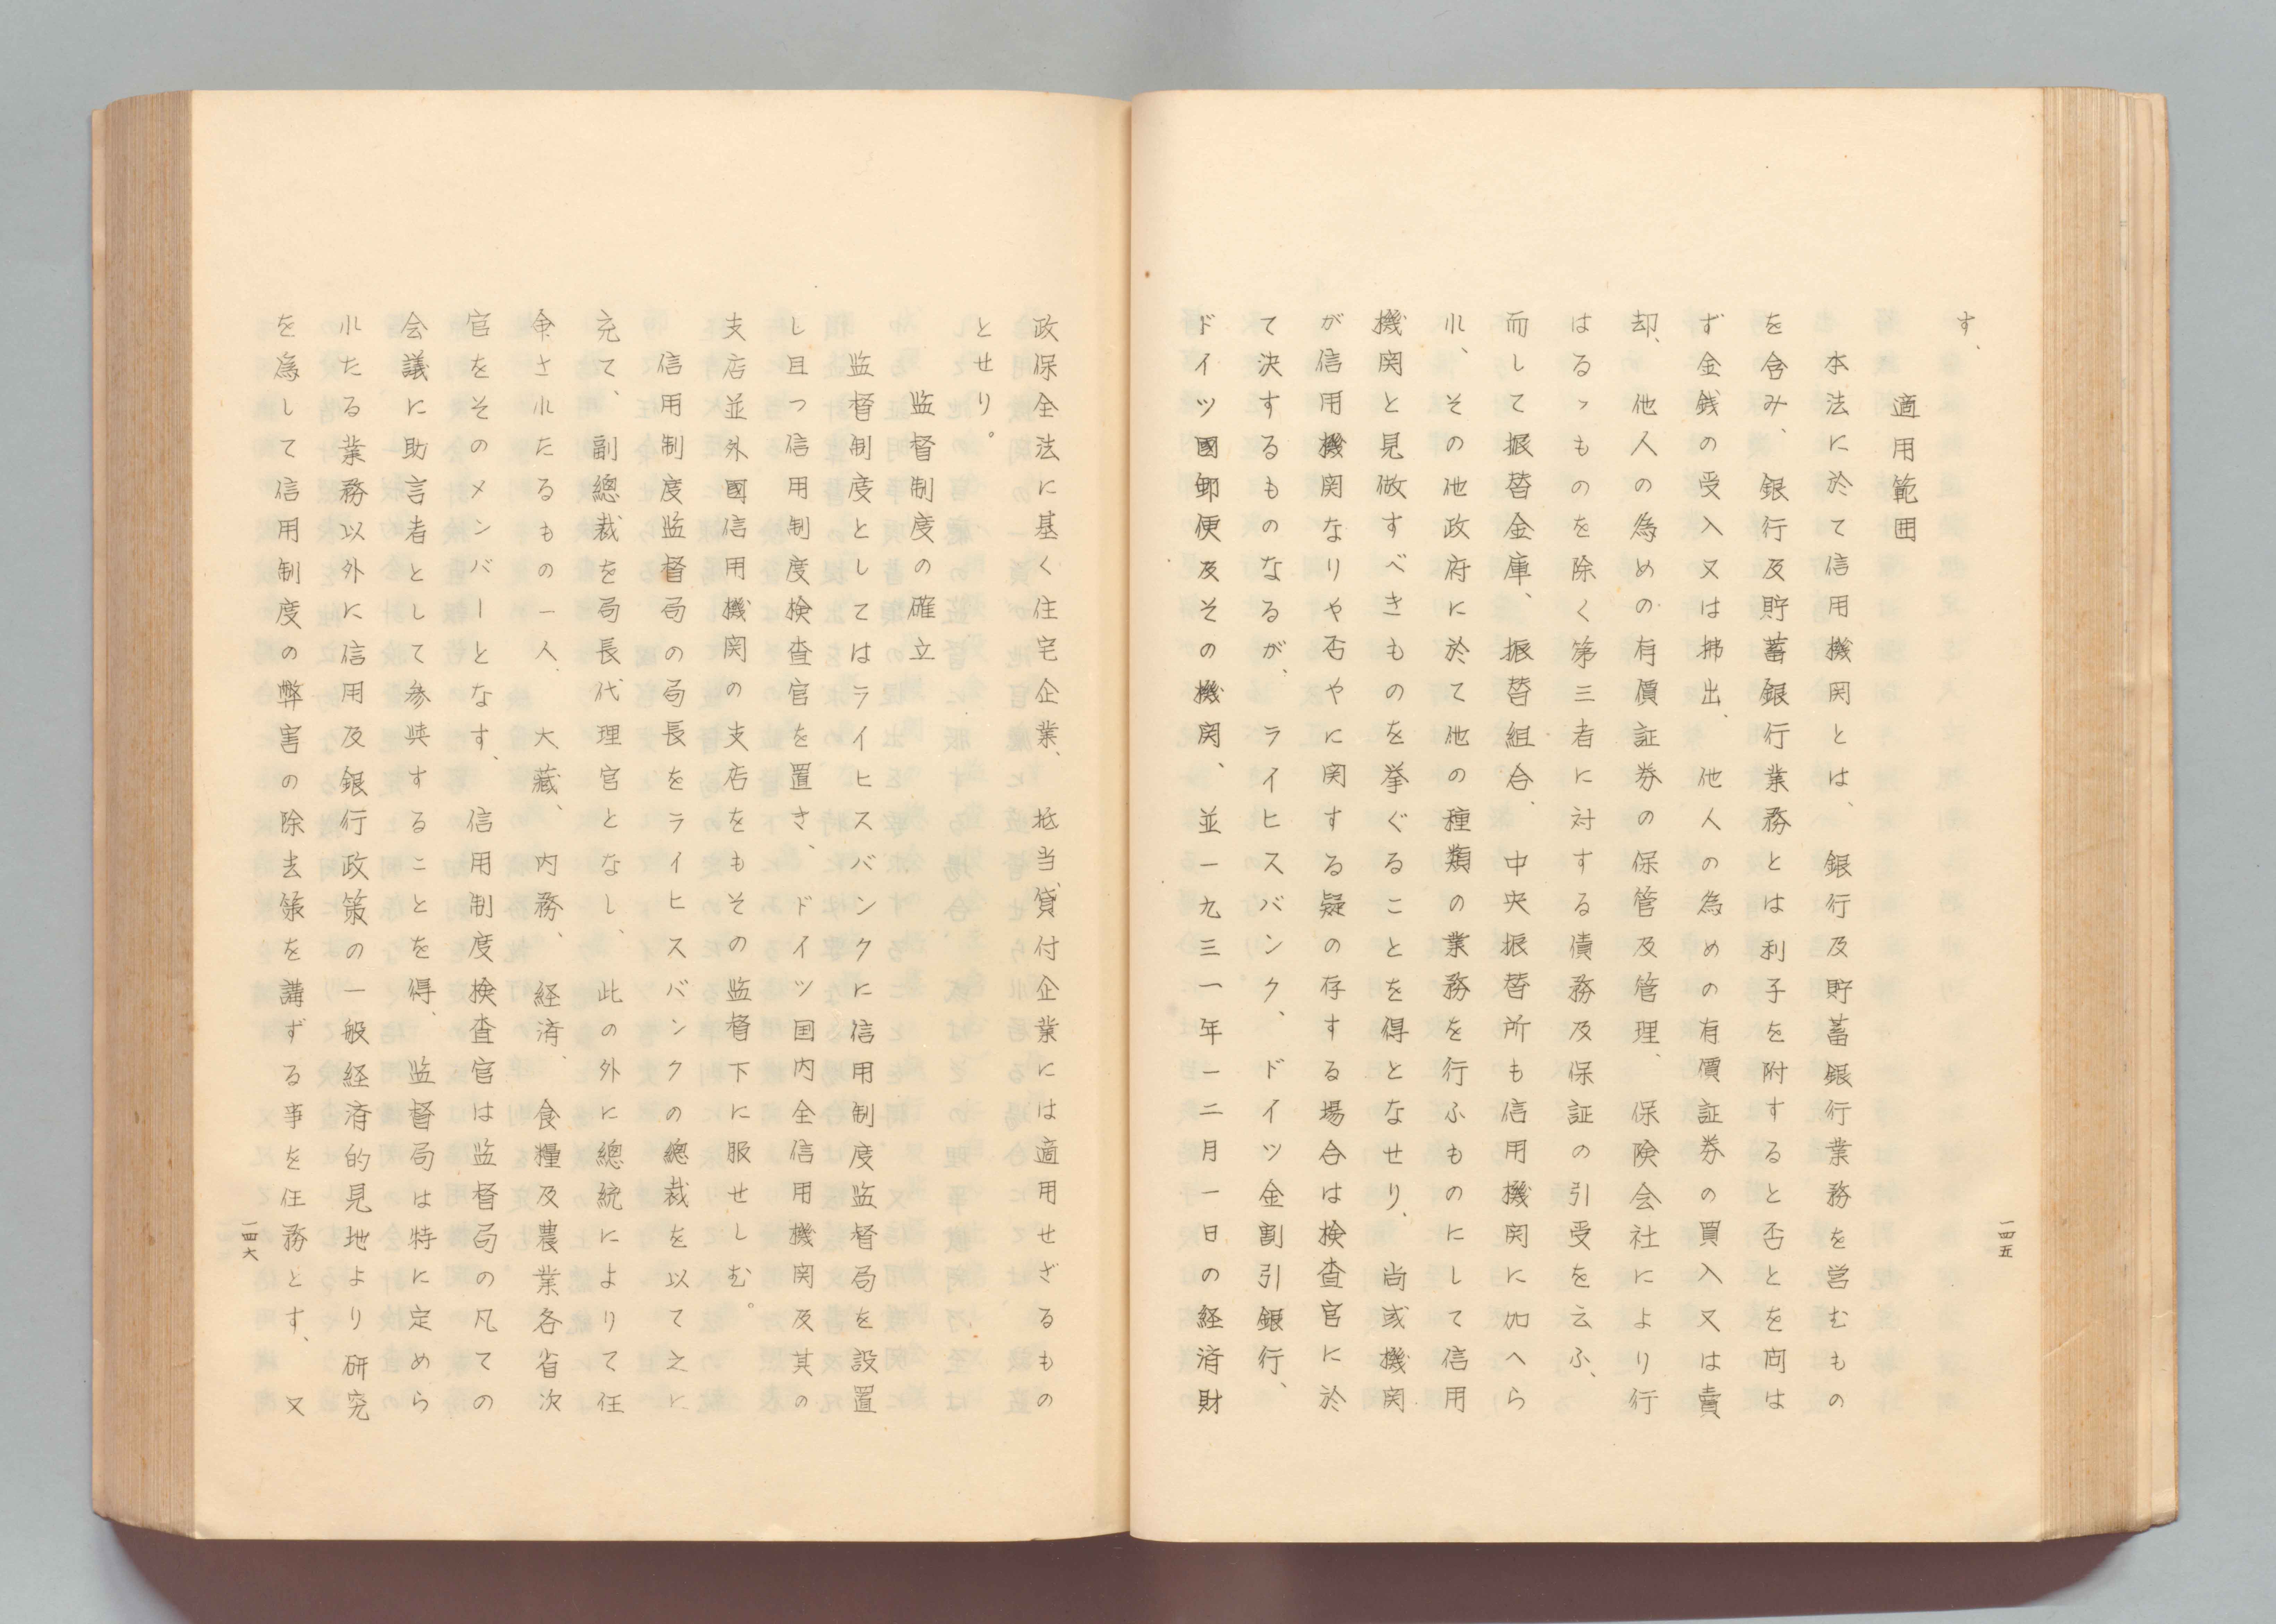 す、
適用範囲
本法に於て信用機関とは、銀行及貯蓄銀行業務を営むもの
を含み、銀行及貯蓄銀行業務とは利子を附すると否とを問は
ず金銭の受入又は拂出、他人の為めの有價証券の買入又は賣
却、他人の為めの有價証券の保管及管理、保険会社により行
はるゝものを除く第三者に対する債務及保証の引受を云ふ、
而して振替金庫、振替組合、中央振替所も信用機関に加へら
れ、その他政府に於て他の種類の業務を行ふものにして信用
機関と見做すべきものを挙ぐることを得となせり、尚或機関
が信用機関なりや否やに関する疑の存する場合は検査官に於
て決するものなるが、ライヒスバンク、ドイツ金割引銀行、
ドイツ國郵便及その機関、並一九三一年一二月一日の経済財
一四五
政保全法に基く住宅企業、抵当貸付企業には適用せざるもの
とせり。
監督制度の確立
監督制度としてはライヒスバンクに信用制度監督局を設置
し且つ信用制度検査官を置き、ドイツ国内全信用機関及其の
支店並外國信用機関の支店をもその監督下に服せしむ。
信用制度監督局の局長をライヒスバンクの總裁を以て之に
充て、副總裁を局長代理官となし、此の外に總統によりて任
命されたるもの一人、大藏、内務、経済、食糧及農業各省次
官をそのメンバーとなす、信用制度検査官は監督局の凡ての
会議に助言者として参することを得、監督局は特に定めら
れたる業務以外に信用及銀行政策の一般経済的見地より研究
を為して信用制度の弊害の除去策を講ずる事を任務とす、又
一四六